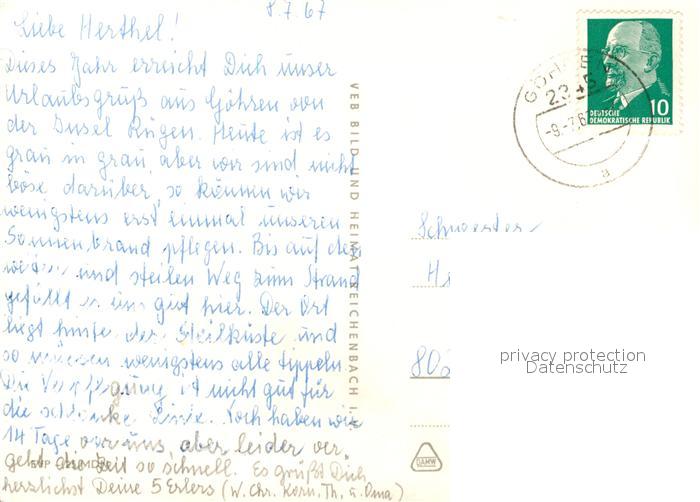 8.7.67
Liebe Herthel!
Dieses Jahr erreicht Dich unser
Urlaubsgruß aus Göhren von
der Insel Rügen. Heute ist es
grau in grau, aber wir sind nicht
böse darüber, so können wir
wenigstens erst einmal unseren
Sonnenbrand pflegen. Bis auf den
weiten und steilen Weg zum Strand
gefällt es uns gut hier. Der Ort
liegt hinter der Steilküste und
so müssen wenigstens alle tippeln.
Die Verpflegung ist nicht gut für
die schlanke Linie. Noch haben wir
14 Tage vor uns, aber leider ver-
geht die Zeit so schnell. Es grüßt Dich
herzlichst Deine 5 Erlers (W. Chr. Korn. Th. u. Oma)
VEB BILD UND HEIMAT REICHENBACH I. V.
GÖHREN
23
-9.-7.6
a
10
DEUTSCHE
DEMOKRATISCHE REPUBLIK
Schwester
H
80
privacy protection
Datenschutz
DAMW